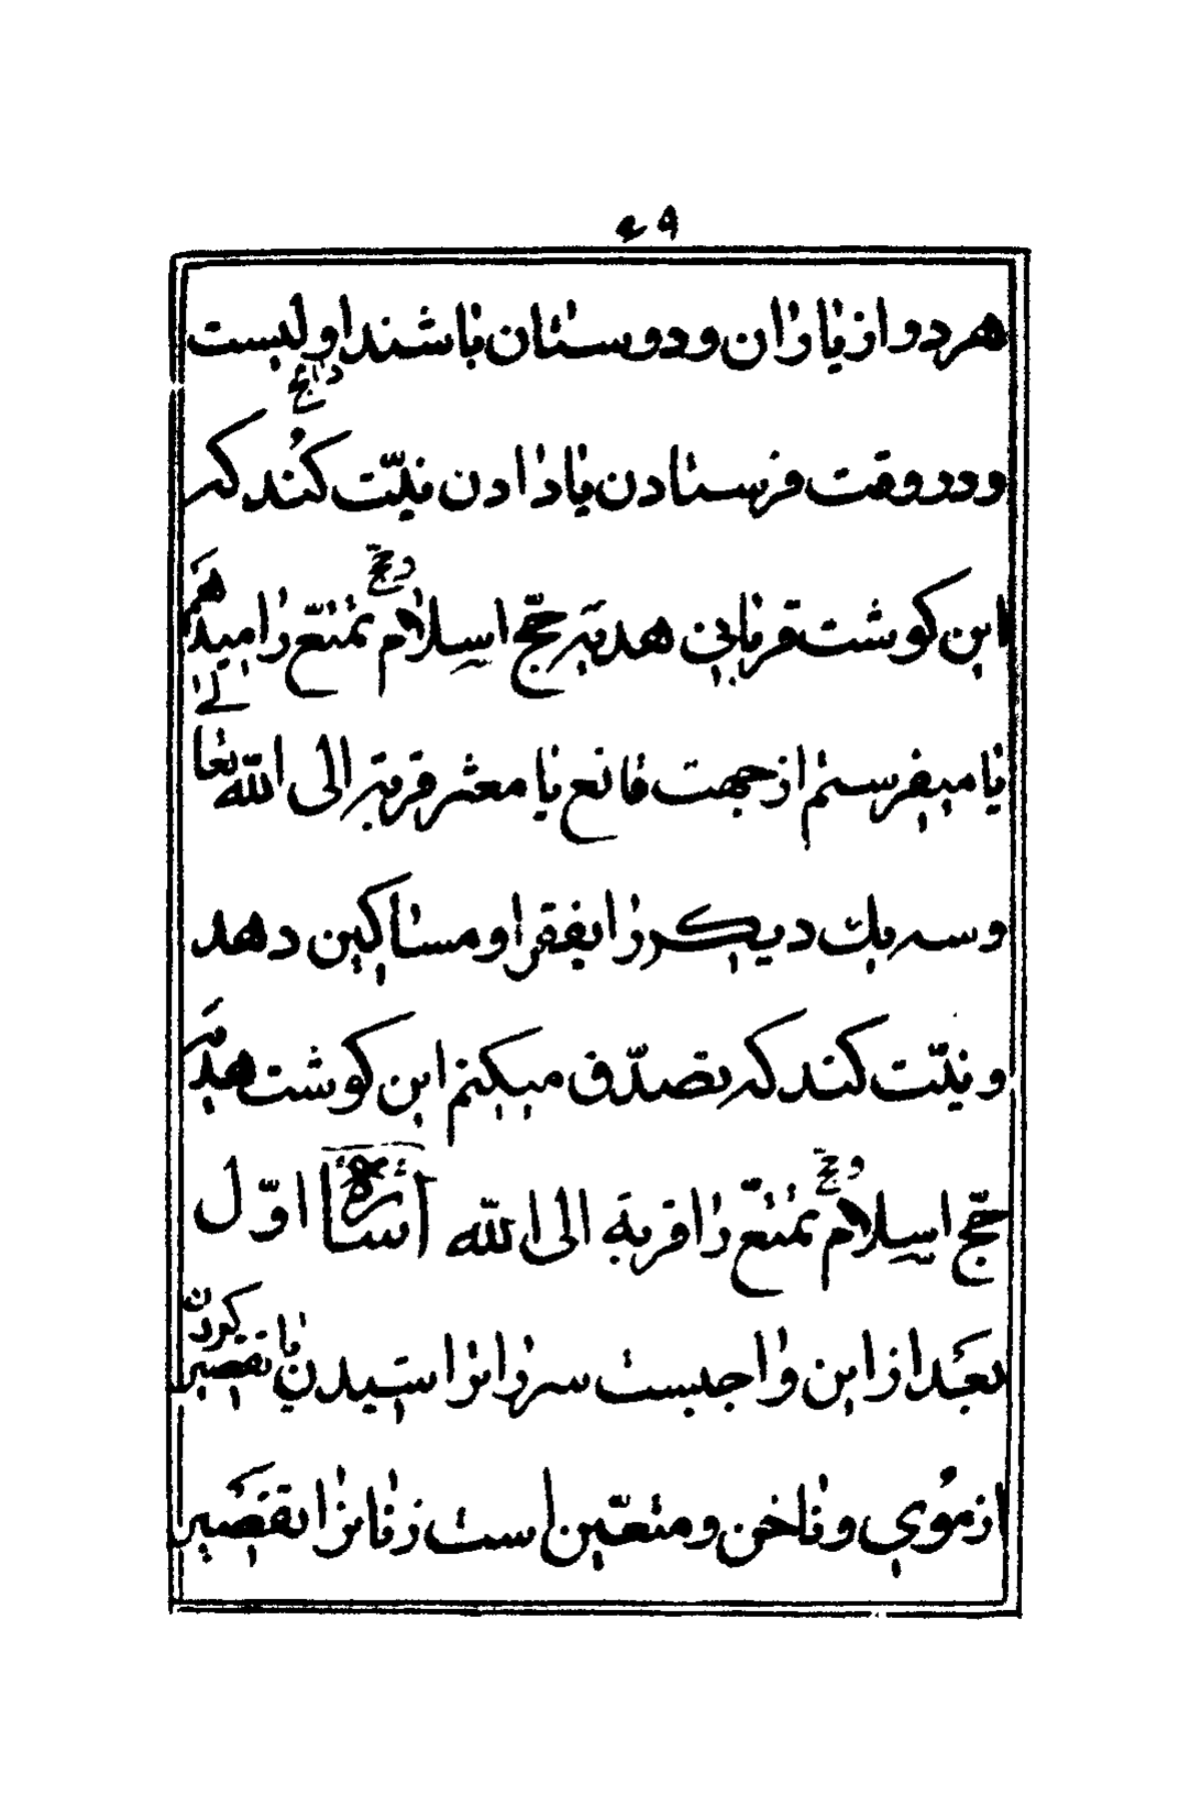 ۴۹
هر دو از یاران و دوستان باشند اولیست
و در وقت فرستادن یا دادن نیّت کند که
این کوشت قربانی هدیه حجّ اسلام تمتّع را میدهم
یا میفرستم از جهت قانع یا معتر قربة الی اللّه تعالی
و سه یک دیکر را بفقرا و مساکین دهد
و نیّت کند که تصدّق میکنم این کوشت هدیه
حجّ اسلام تمتّع را قربة الی اللّه اوّل
بعد از این واجبست سر را تراشیدن یا تقصیر کردن
از موی و ناخن و متعیّن است زنانرا تقصیر